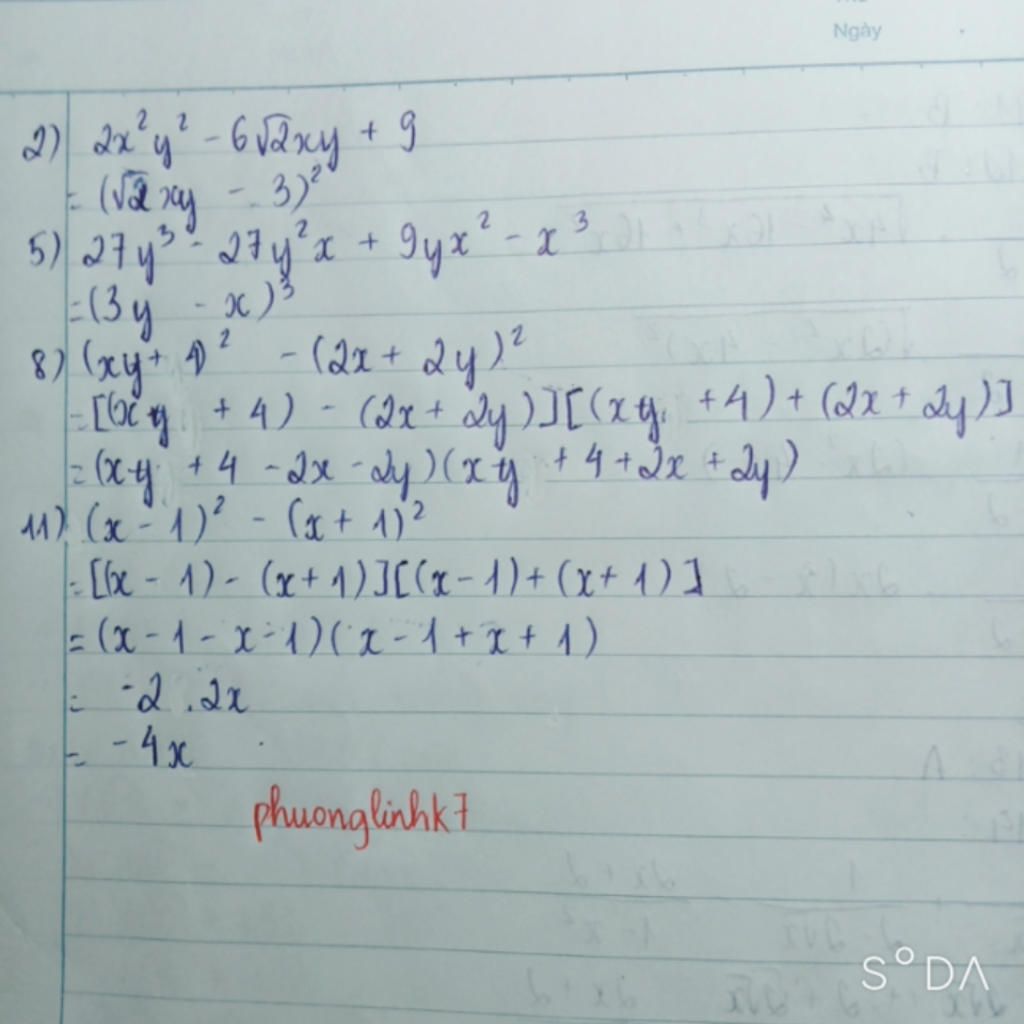 Ngày
2) 2x²y² - 6√2xy + 9
= (√2xy - 3)²
5) 27y³ - 27y²x + 9yx² - x³
= (3y - x)³
8) (xy + 4)² - (2x + 2y)²
= [(xy + 4) - (2x + 2y)][(xy + 4) + (2x + 2y)]
= (xy + 4 - 2x - 2y)(xy + 4 + 2x + 2y)
11) (x - 1)² - (x + 1)²
= [(x - 1) - (x + 1)][(x - 1) + (x + 1)]
= (x - 1 - x - 1)(x - 1 + x + 1)
= -2 . 2x
= -4x
phuonglinhk7
S°DA